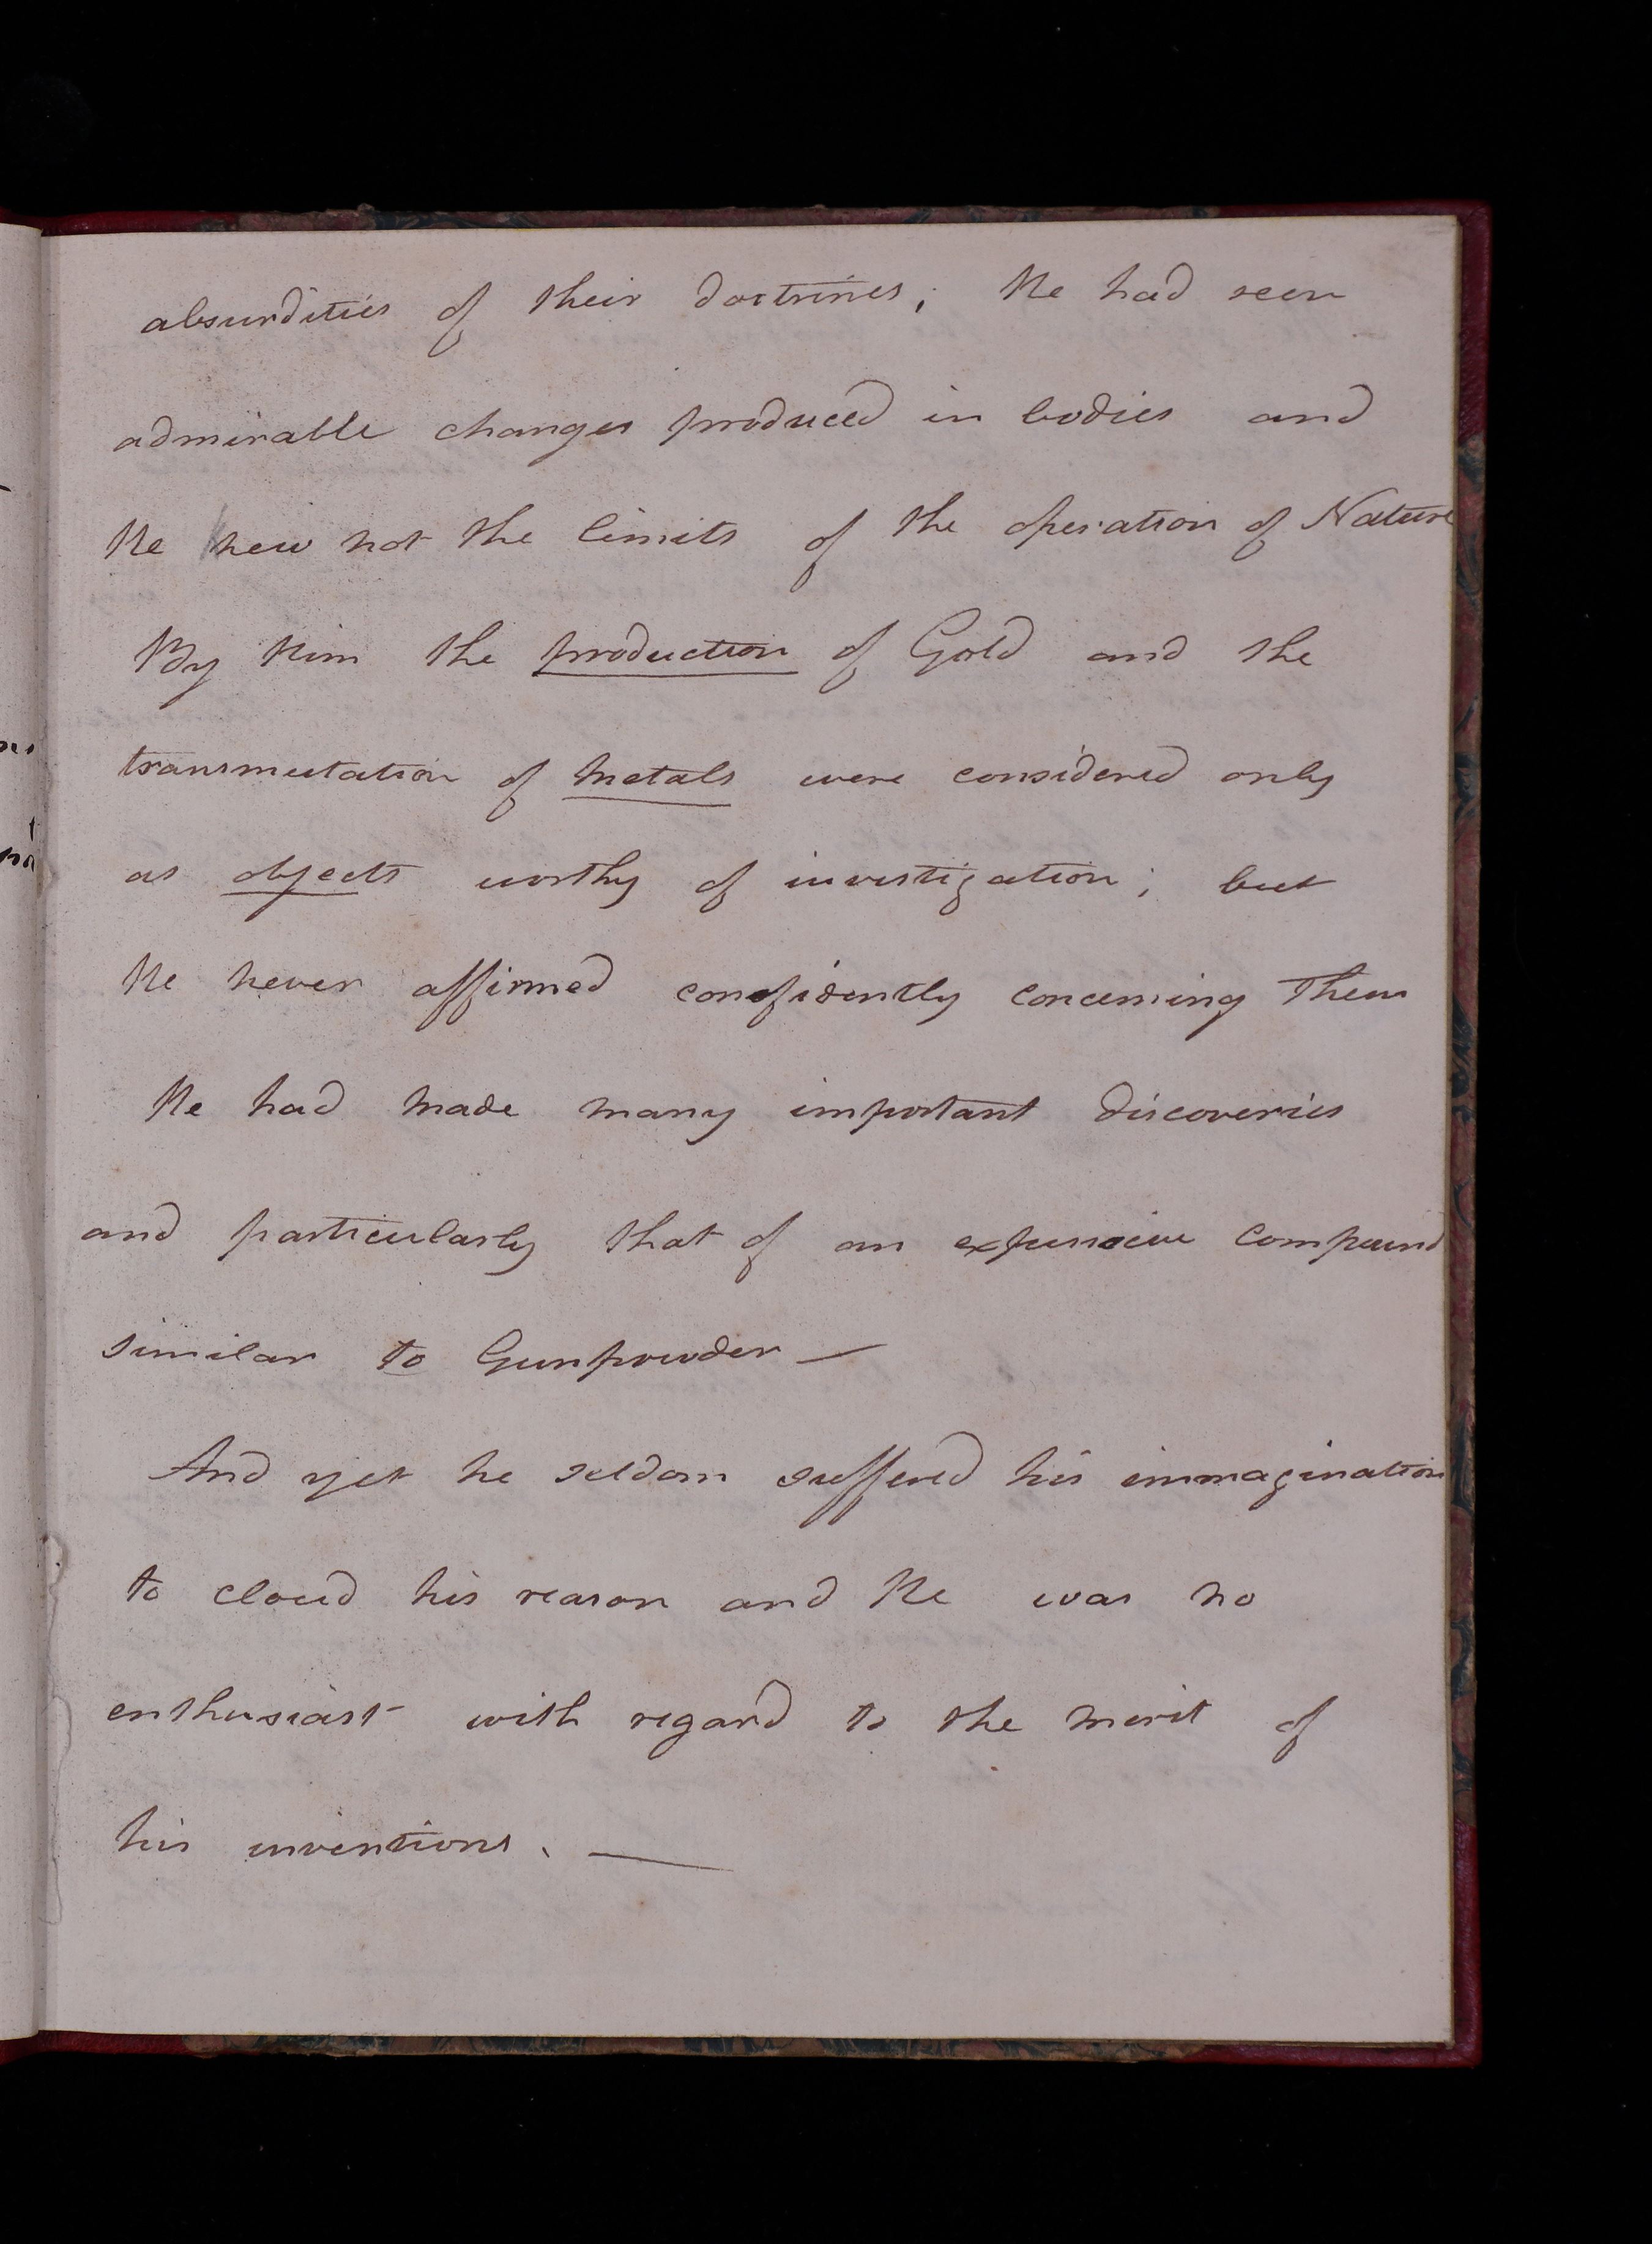 absurdities of their doctrines; He had seen
admirable changes produced in bodies and
He knew not the limits of the operation of Nature
By Him the production of Gold and the
transmutation of metals were considered only
as objects worthy of investigation; but
He never affirmed confidently concerning Them
He had made many important discoveries
and particularly that of an expensive compound
similar to Gunpowder —
And yet he seldom suffered his immagination
to cloud his reason and He was no
enthusiast with regard to the merit of
his inventions. —